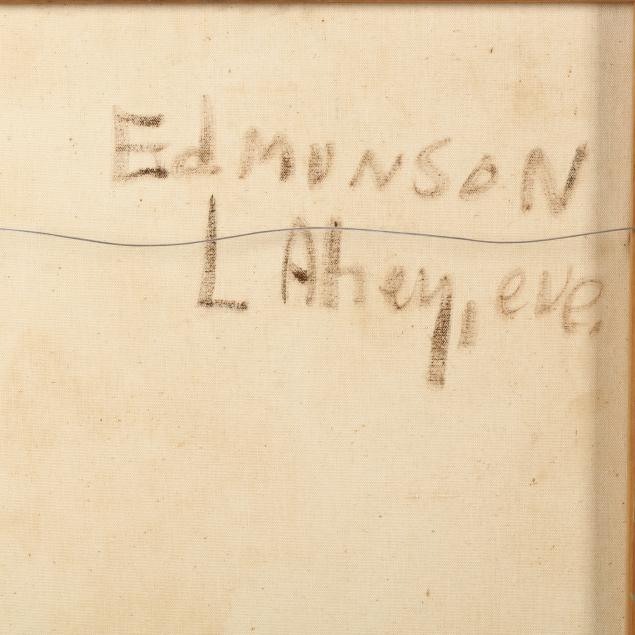 EdMUNSON
LAhey, eve.